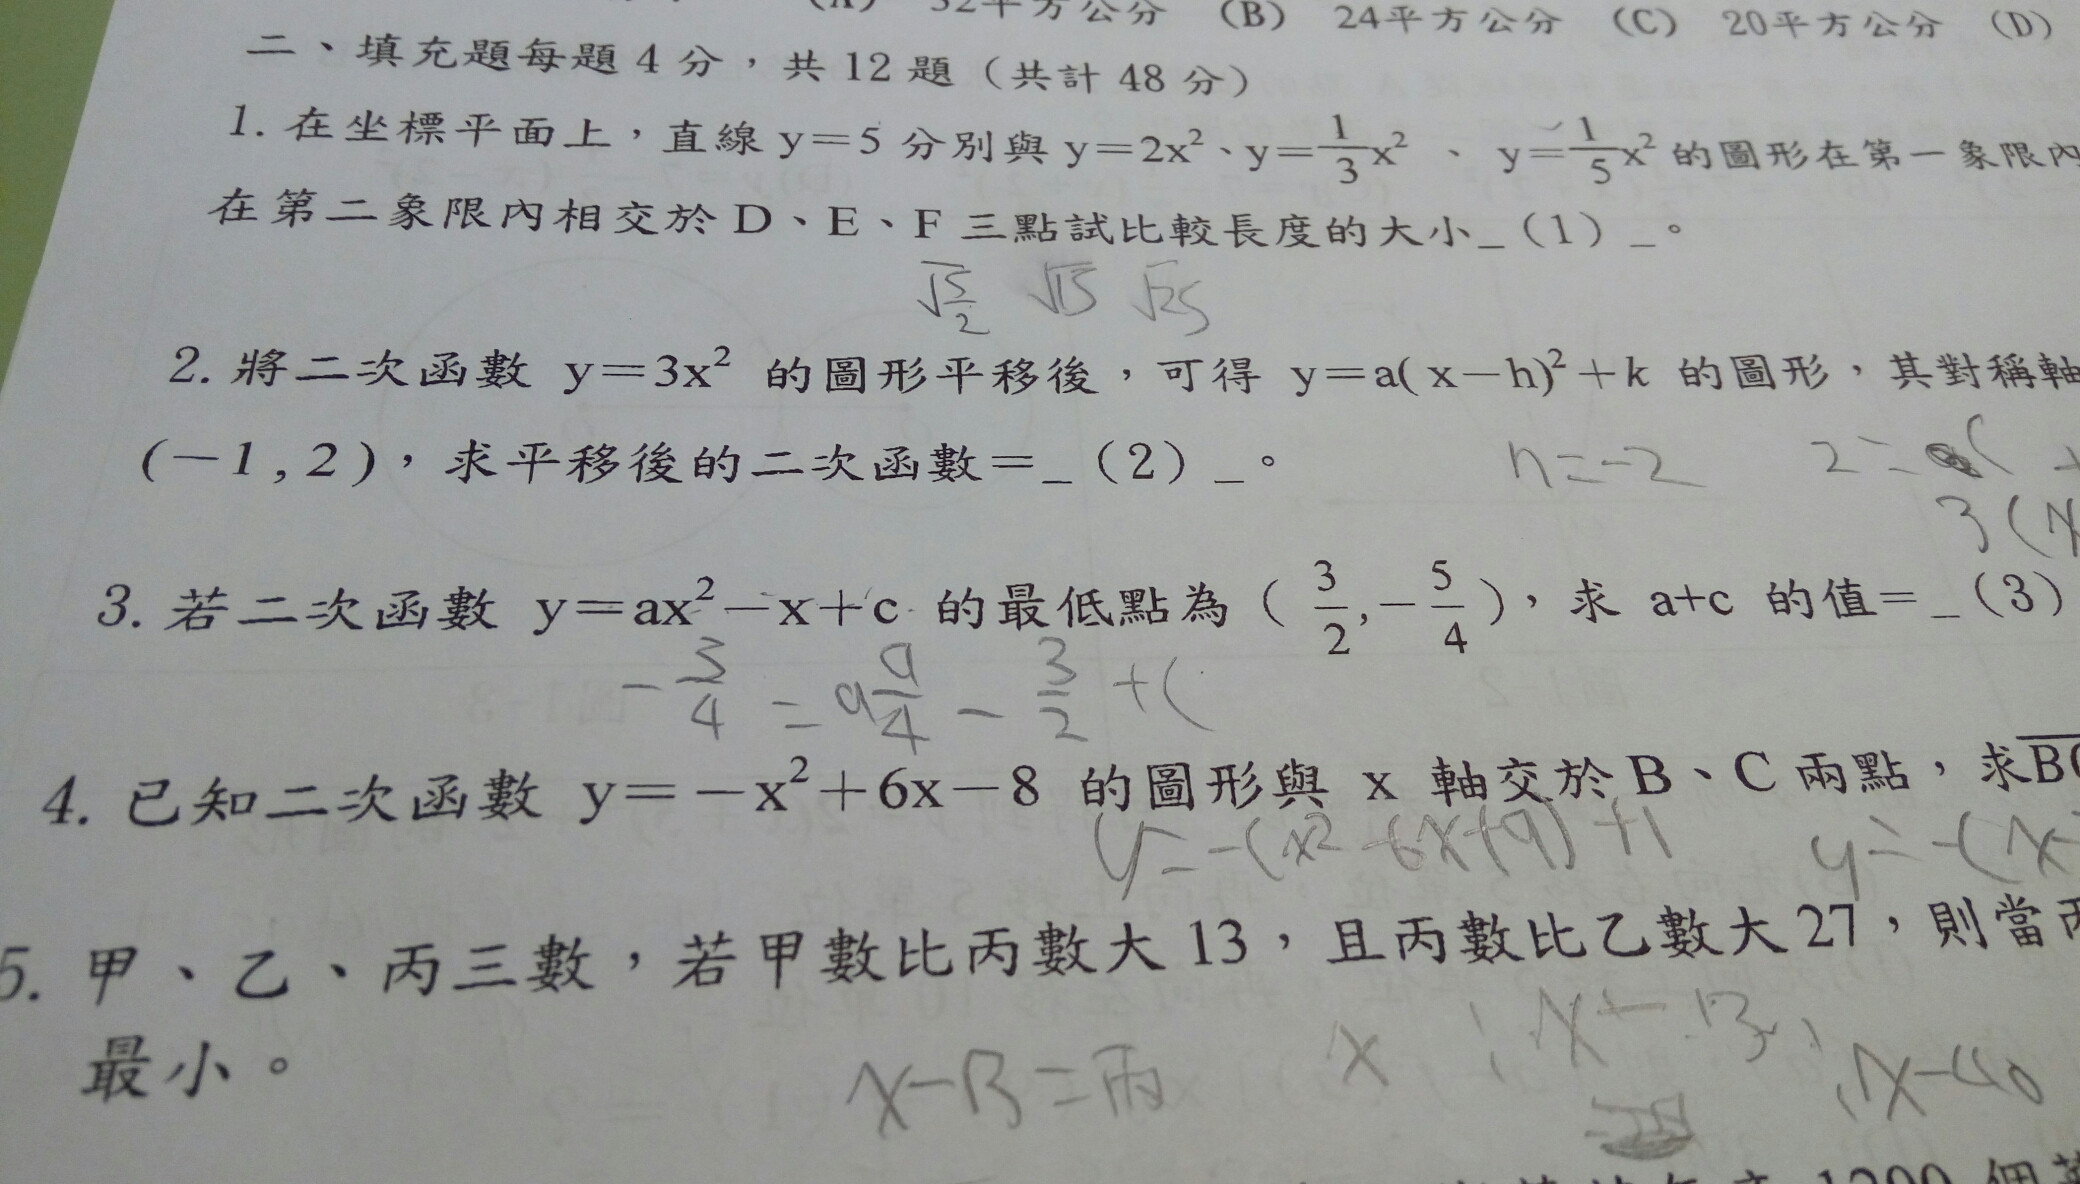 32平方公分 (B) 24平方公分 (C) 20平方公分 (D)
二、填充題每題 4 分，共 12 題（共計 48 分）
1. 在坐標平面上，直線 y=5 分別與 y=2x²、y=1/3x² 、 y=1/5x² 的圖形在第一象限內
在第二象限內相交於 D、E、F 三點試比較長度的大小_（1）_。
√5/2 √15 √25
2. 將二次函數 y=3x² 的圖形平移後，可得 y=a(x-h)²+k 的圖形，其對稱軸
(-1,2)，求平移後的二次函數=_（2）_。
h=-2 2=
3(x
3. 若二次函數 y=ax²-x+c 的最低點為 (3/2,-5/4)，求 a+c 的值=_（3）
-5/4 = a9/4 - 3/2 +c
4. 已知二次函數 y=-x²+6x-8 的圖形與 x 軸交於 B、C 兩點，求
y=-(x²-6x+9)+1 y=-(x-
5. 甲、乙、丙三數，若甲數比丙數大 13，且丙數比乙數大 27，則當
最小。
x-13=丙 x ; x-13 ; x-40
1200 個